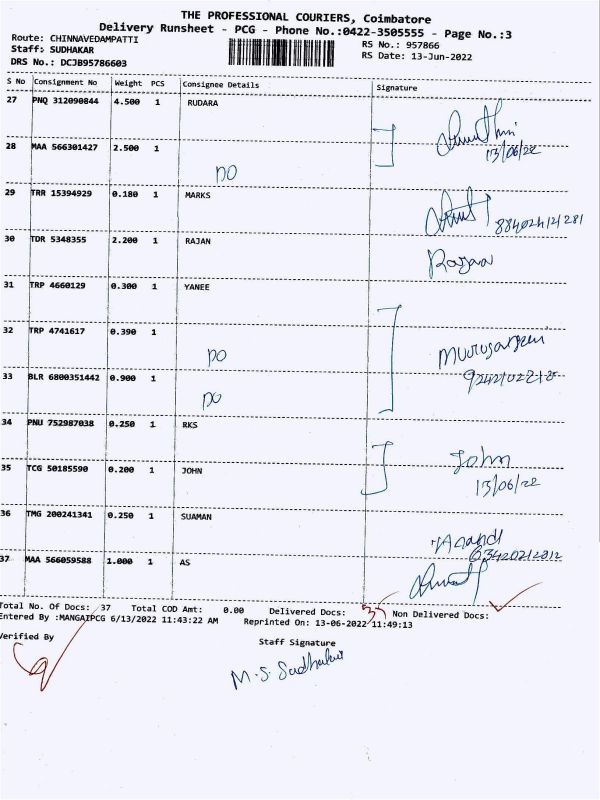 THE PROFESSIONAL COURIERS, Coimbatore
Delivery Runsheet - PCG - Phone No.:0422-3505555 - Page No.:3
Route: CHINNAVEDAMPATTI
RS No.: 957866
Staff: SUDHAKAR
RS Date: 13-Jun-2022
DRS No.: DCJB95786603
S No Consignment No Weight PCS Consignee Details Signature
27 PNQ 312090844 4.500 1 RUDARA
28 MAA 566301427 2.500 1
13/06/22
DO
29 TRR 15394929 0.180 1 MARKS
30 TDR 5348355 2.200 1 RAJAN
31 TRP 4660129 0.300 1 YANEE
32 TRP 4741617 0.390 1
DO
33 BLR 6800351442 0.900 1
DO
34 PNU 752987038 0.250 1 RKS
John
35 TCG 50185590 0.200 1 JOHN
13/06/22
36 TMG 200241341 0.250 1 SUAMAN
37 MAA 566059588 1.000 1 AS
Total No. Of Docs: 37 Total COD Amt: 0.00 Delivered Docs: 37 Non Delivered Docs:
Entered By :MANGAIPCG 6/13/2022 11:43:22 AM Reprinted On: 13-06-2022 11:49:13
Verified By
Staff Signature
M.S. Sudhakar